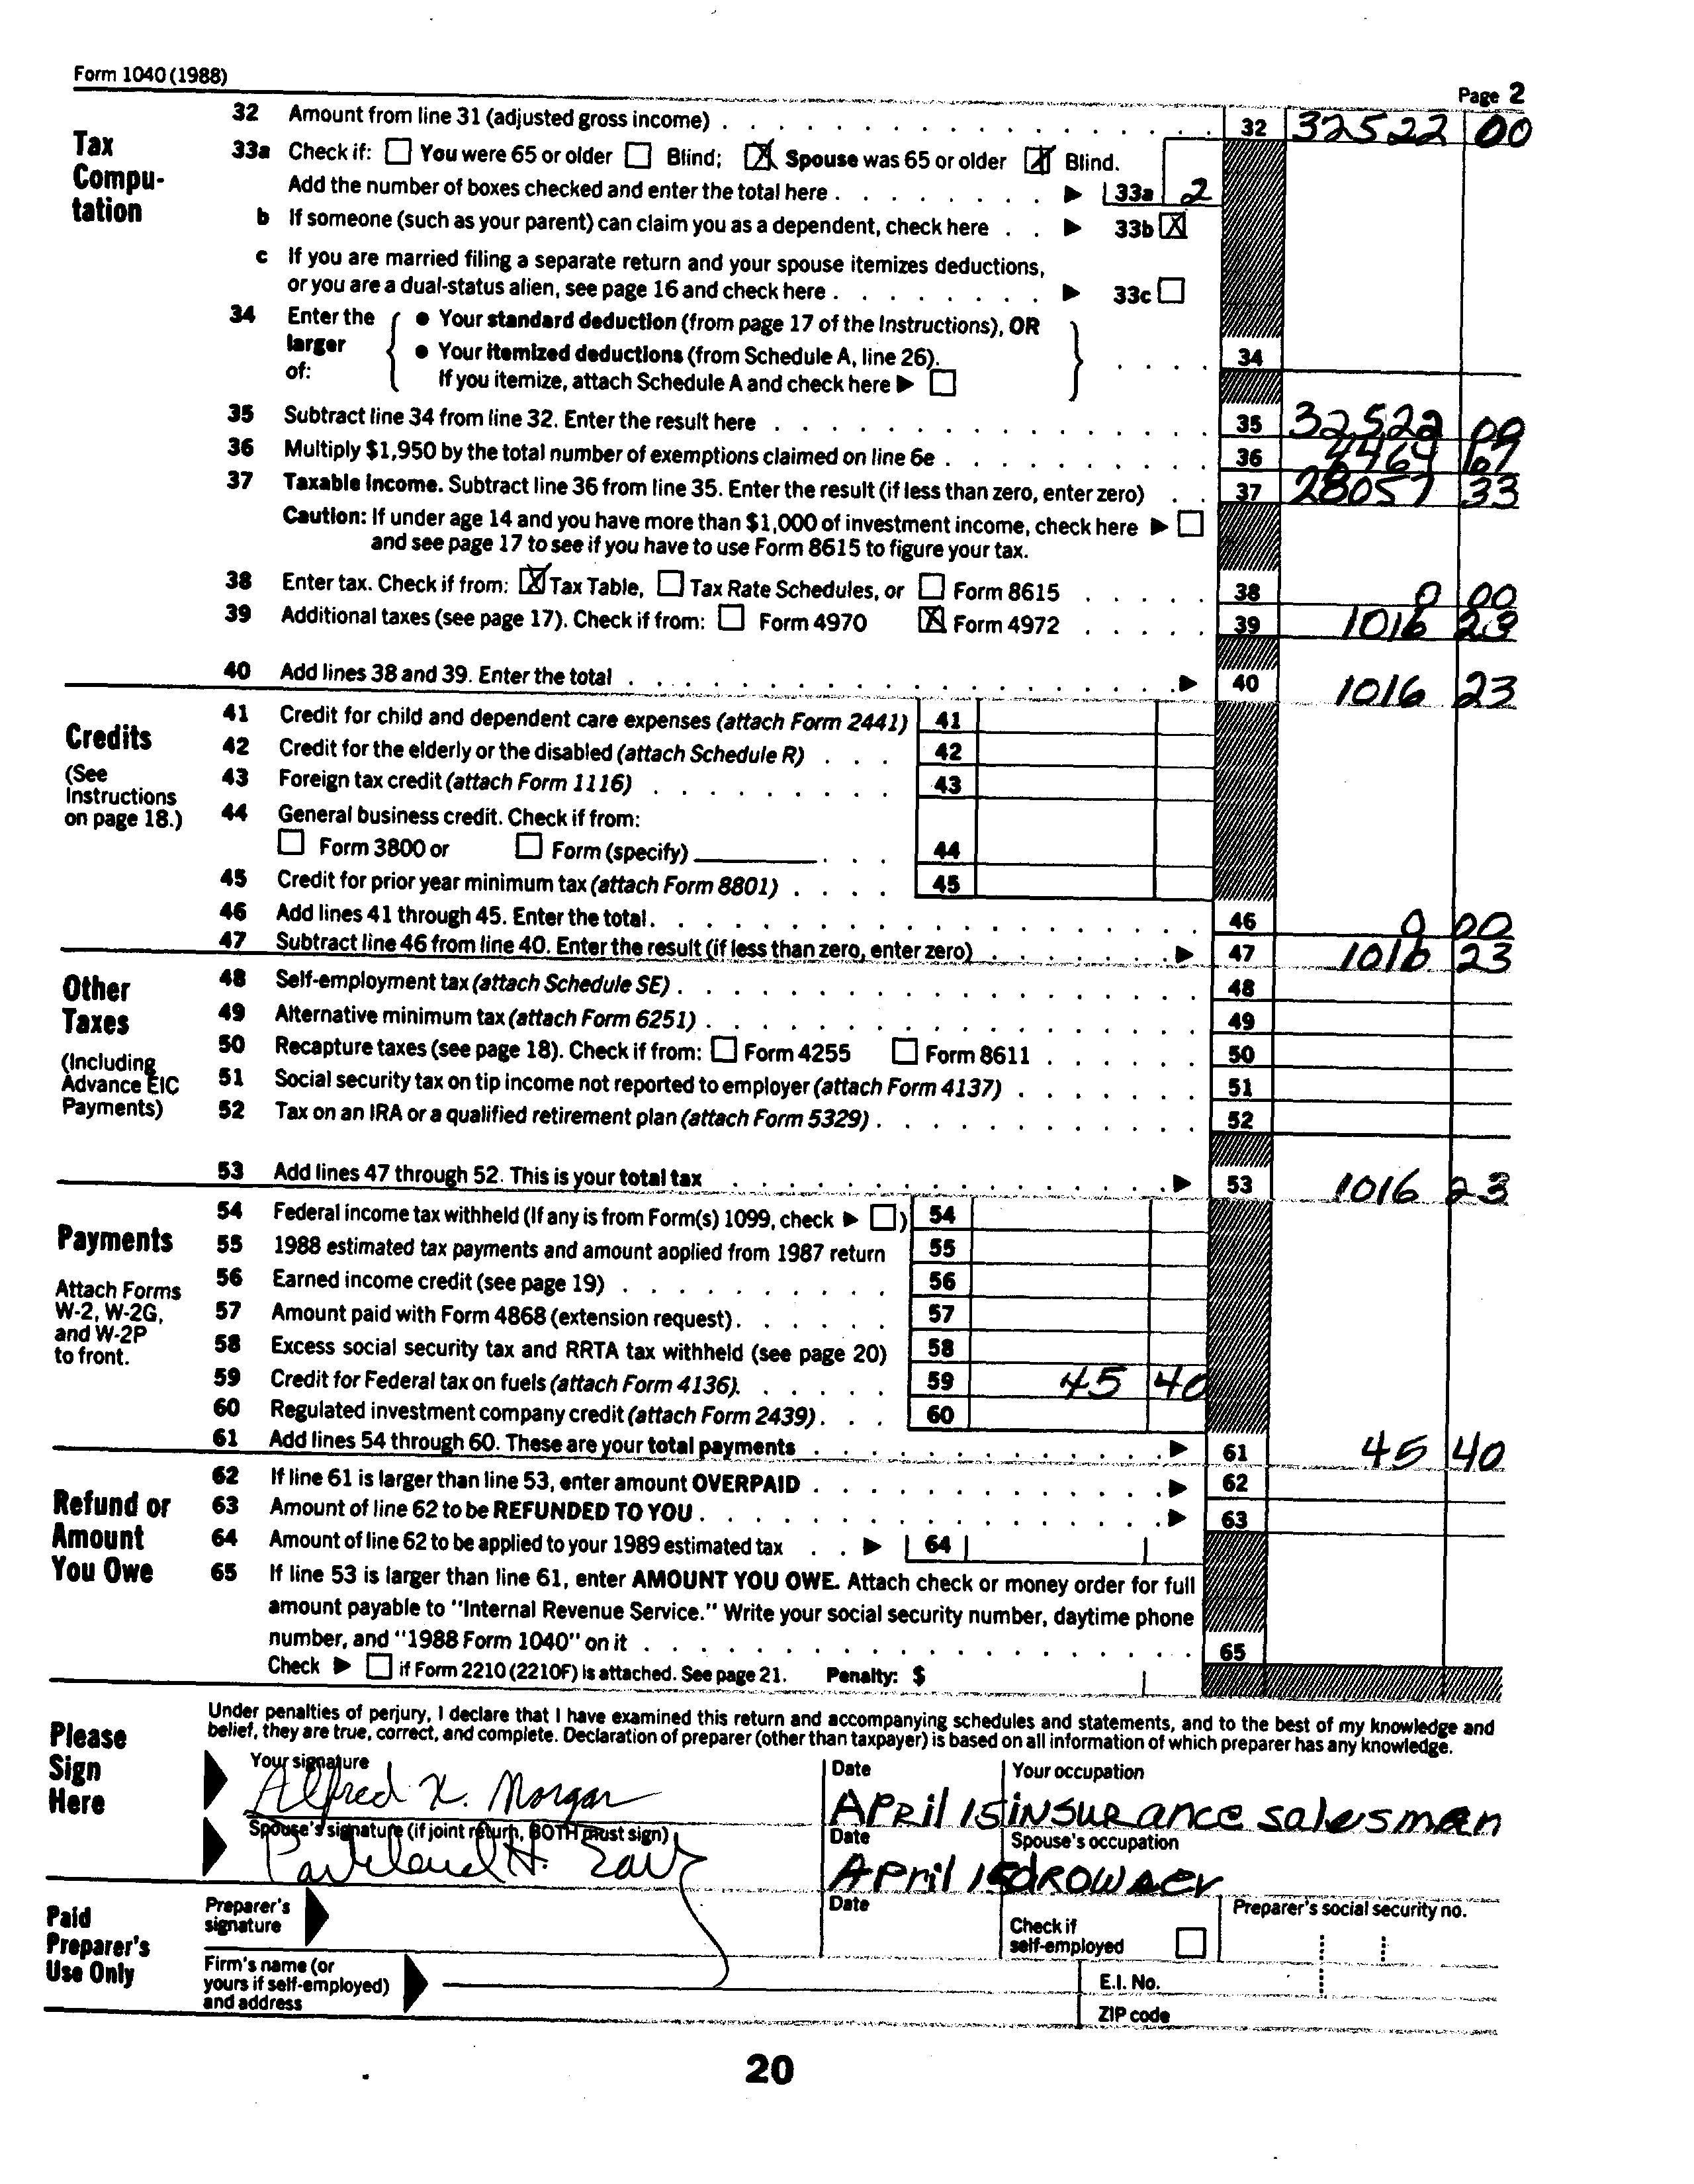 Form 1040 (1988)
Page 2
Tax Compu-tation
32 Amount from line 31 (adjusted gross income) . . . 32 32522 00
33a Check if: You were 65 or older Blind; X Spouse was 65 or older X Blind.
Add the number of boxes checked and enter the total here . . . 33a 2
b If someone (such as your parent) can claim you as a dependent, check here . . 33b X
c If you are married filing a separate return and your spouse itemizes deductions,
or you are a dual-status alien, see page 16 and check here . . . 33c
34 Enter the larger of:
• Your standard deduction (from page 17 of the Instructions), OR
• Your itemized deductions (from Schedule A, line 26).
If you itemize, attach Schedule A and check here
34
35 Subtract line 34 from line 32. Enter the result here . . . 35 32522 00
36 Multiply $1,950 by the total number of exemptions claimed on line 6e . . . 36 4464 67
37 Taxable income. Subtract line 36 from line 35. Enter the result (if less than zero, enter zero) . . 37 28057 33
Caution: If under age 14 and you have more than $1,000 of investment income, check here
and see page 17 to see if you have to use Form 8615 to figure your tax.
38 Enter tax. Check if from: X Tax Table, Tax Rate Schedules, or Form 8615 . . . 38 0 00
39 Additional taxes (see page 17). Check if from: Form 4970 X Form 4972 . . . 39 1016 23
40 Add lines 38 and 39. Enter the total . . . 40 1016 23
Credits
(See Instructions on page 18.)
41 Credit for child and dependent care expenses (attach Form 2441) 41
42 Credit for the elderly or the disabled (attach Schedule R) . . . 42
43 Foreign tax credit (attach Form 1116) . . . 43
44 General business credit. Check if from:
Form 3800 or Form (specify) . . . 44
45 Credit for prior year minimum tax (attach Form 8801) . . . 45
46 Add lines 41 through 45. Enter the total. . . . 46 0 00
47 Subtract line 46 from line 40. Enter the result (if less than zero, enter zero) . . . 47 1016 23
Other Taxes
(Including Advance EIC Payments)
48 Self-employment tax (attach Schedule SE) . . . 48
49 Alternative minimum tax (attach Form 6251) . . . 49
50 Recapture taxes (see page 18). Check if from: Form 4255 Form 8611 . . . 50
51 Social security tax on tip income not reported to employer (attach Form 4137) . . . 51
52 Tax on an IRA or a qualified retirement plan (attach Form 5329) . . . 52
53 Add lines 47 through 52. This is your total tax . . . 53 1016 23
Payments
Attach Forms W-2, W-2G, and W-2P to front.
54 Federal income tax withheld (If any is from Form(s) 1099, check ) 54
55 1988 estimated tax payments and amount applied from 1987 return 55
56 Earned income credit (see page 19) . . . 56
57 Amount paid with Form 4868 (extension request). . . . 57
58 Excess social security tax and RRTA tax withheld (see page 20) 58
59 Credit for Federal tax on fuels (attach Form 4136). . . . 59 45 40
60 Regulated investment company credit (attach Form 2439). . . 60
61 Add lines 54 through 60. These are your total payments . . . 61 45 40
Refund or Amount You Owe
62 If line 61 is larger than line 53, enter amount OVERPAID . . . 62
63 Amount of line 62 to be REFUNDED TO YOU . . . 63
64 Amount of line 62 to be applied to your 1989 estimated tax . . 64
65 If line 53 is larger than line 61, enter AMOUNT YOU OWE. Attach check or money order for full
amount payable to "Internal Revenue Service." Write your social security number, daytime phone
number, and "1988 Form 1040" on it . . . 65
Check if Form 2210 (2210F) is attached. See page 21. Penalty: $
Please Sign Here
Under penalties of perjury, I declare that I have examined this return and accompanying schedules and statements, and to the best of my knowledge and
belief, they are true, correct, and complete. Declaration of preparer (other than taxpayer) is based on all information of which preparer has any knowledge.
Your signature
Date
Your occupation
Alfred X. Morgan
APRil 15
iNSURance salesman
Spouse's signature (if joint return, BOTH must sign)
Date
Spouse's occupation
H.
APril 15
Paid Preparer's Use Only
Preparer's signature
Date
Check if self-employed
Preparer's social security no.
Firm's name (or yours if self-employed) and address
E.I. No.
ZIP code
20